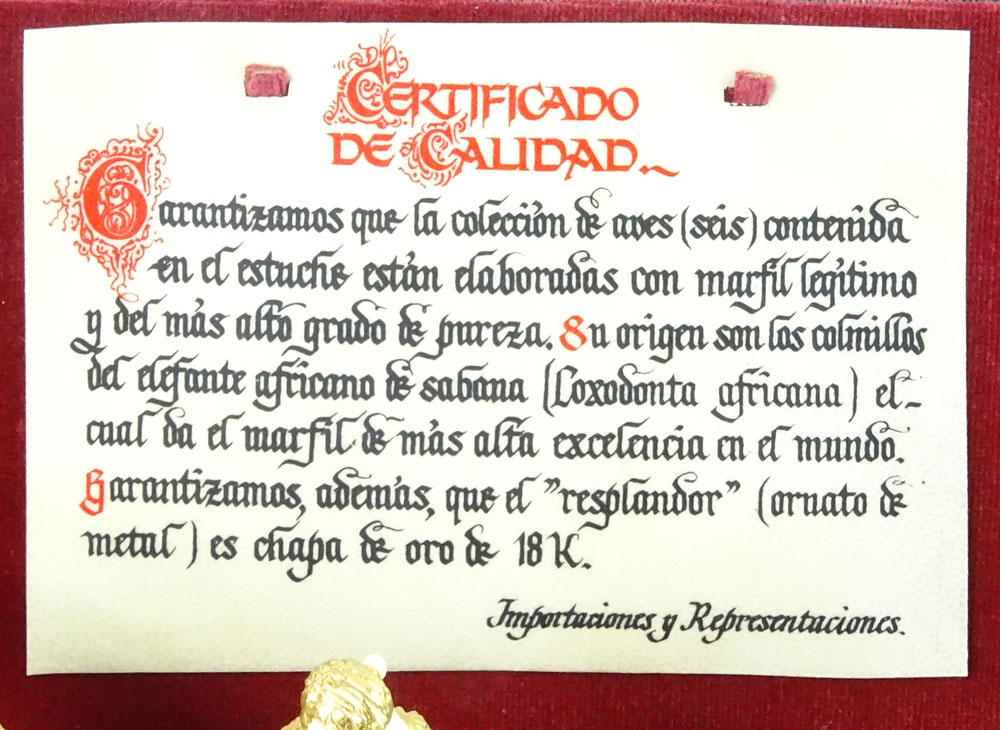 CERTIFICADO
DE CALIDAD.~
Garantizamos que la colección de aves (seis) contenida
en el estuche están elaboradas con marfil legítimo
y del más alto grado de pureza. Su origen son los colmillos
del elefante africano de sabana (Loxodonta africana) el-
cual da el marfil de más alta excelencia en el mundo.
Garantizamos, además, que el "resplandor" (ornato de
metal) es chapa de oro de 18 K.
Importaciones y Representaciones.